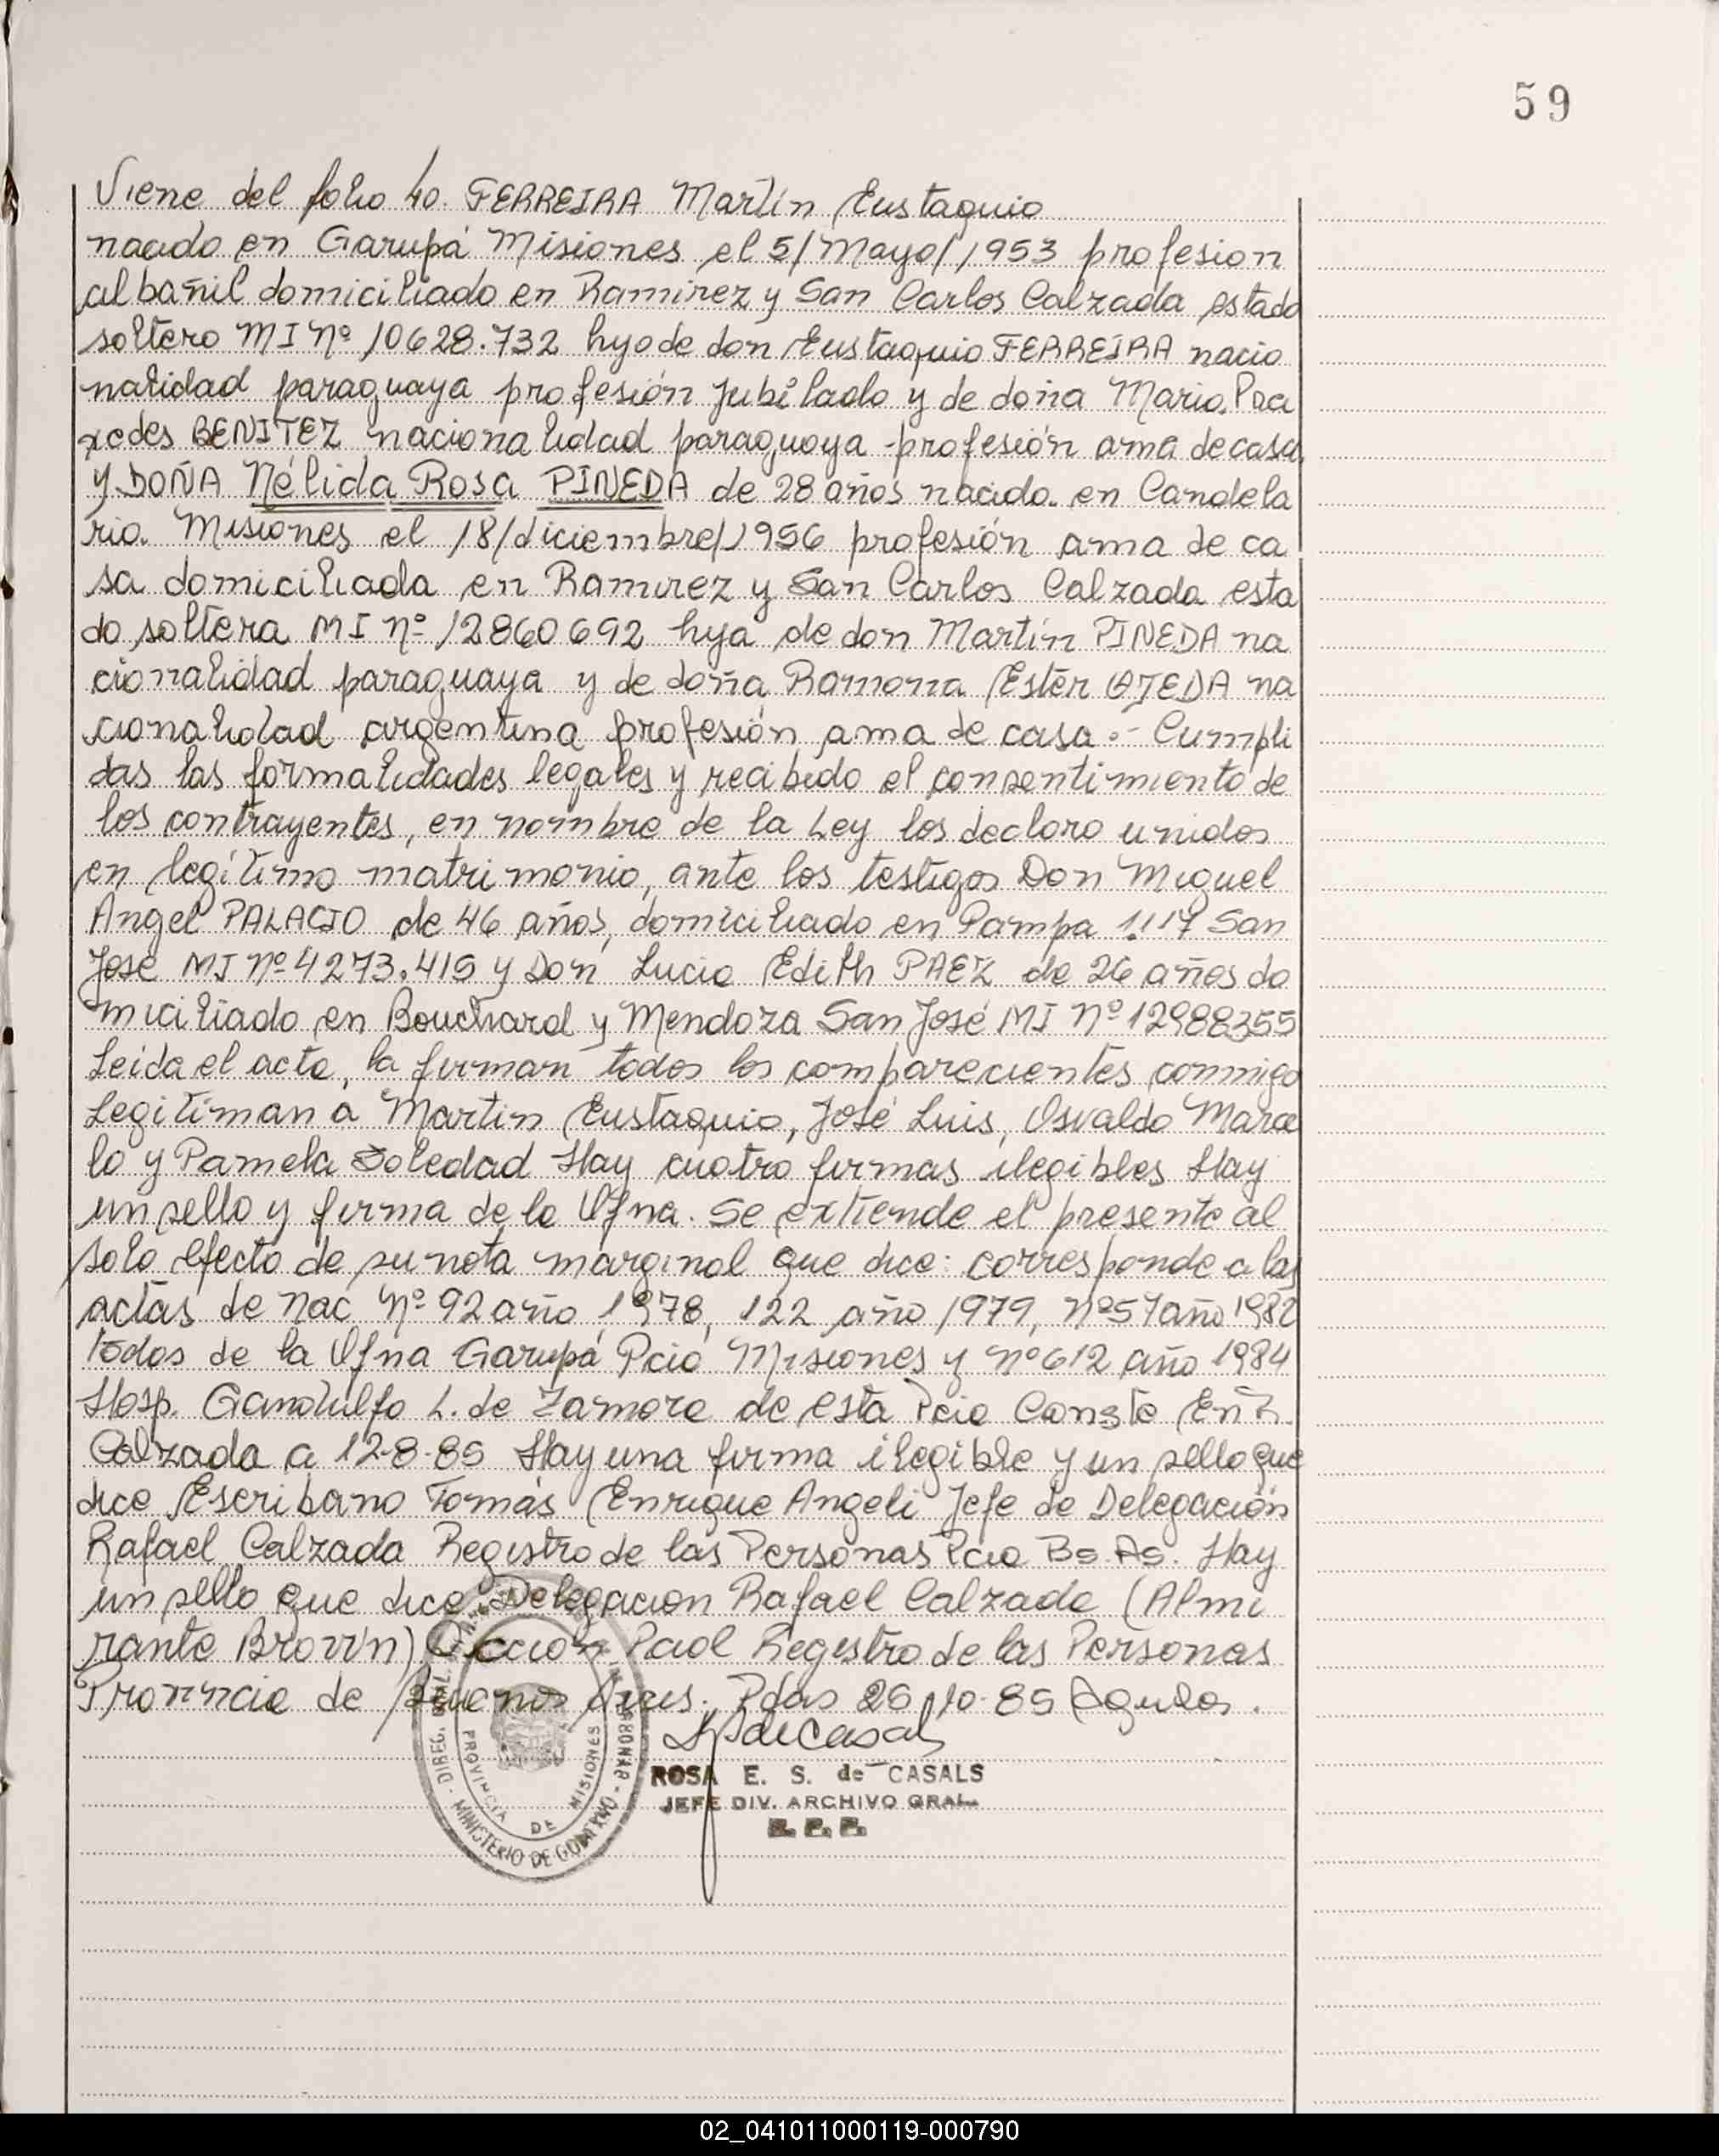 59
Viene del folio 40. FERREIRA Martín Eustaquio
nacido en Garupá Misiones el 5/Mayo/1953 profesion
albañil domiciliado en Ramirez y San Carlos Calzada estado
soltero MI Nº 10628.732 hijo de don Eustaquio FERREIRA nacio
nalidad paraguaya profesión jubilado y de doña Maria Pra
xedes BENITEZ nacionalidad paraguaya profesión ama de casa
y DOÑA Nélida Rosa PINEDA de 28 años nacida en Candela
ria Misiones el 18/diciembre/1956 profesión ama de ca
sa domiciliada en Ramirez y San Carlos Calzada esta
do soltera MI nº 12860692 hija de don Martín PINEDA na
cionalidad paraguaya y de doña Ramona Ester OJEDA na
cionalidad argentina profesión ama de casa.- Cumpli
das las formalidades legales y recibido el consentimiento de
los contrayentes, en nombre de la Ley los declaro unidos
en legítimo matrimonio, ante los testigos Don Miguel
Angel PALACIO de 46 años, domiciliado en Pampa 1117 San
José MI Nº 4273.415 y Don Lucia Edith PAEZ de 26 años do
miciliado en Bouchard y Mendoza San José MI Nº 12988355
Leida el acta, la firman todos los comparecientes conmigo
Legitiman a Martin Eustaquio, José Luis, Osvaldo Marce
lo y Pamela Soledad Hay cuatro firmas ilegibles Hay
un sello y firma de la Ofna. Se extiende el presente al
solo efecto de su nota marginal que dice: corresponde a las
actas de Nac Nº 92 año 1978, 122 año 1979, Nº 57 año 1982
Todos de la Ofna Garupá Pcia Misiones y Nº 612 año 1984
Hosp. Gandulfo L. de Zamora de esta Pcia Conste En R.
Calzada a 12-8-85 Hay una firma ilegible y un sello que
dice Escribano Tomás Enrique Angeli Jefe de Delegación
Rafael Calzada Registro de las Personas Pcia Bs. As. Hay
un sello que dice: Delegacion Rafael Calzada (Almi
rante Brown) Dirección Pcial Registro de las Personas
Provincia de Buenos Aires. Pdas 26-10-85 Agulos.
ROSA E. S. de CASALS
JEFE DIV. ARCHIVO GRAL.
R. P. P.
PROVINCIA DE MISIONES
MINISTERIO DE GOBIERNO
02_041011000119-000790